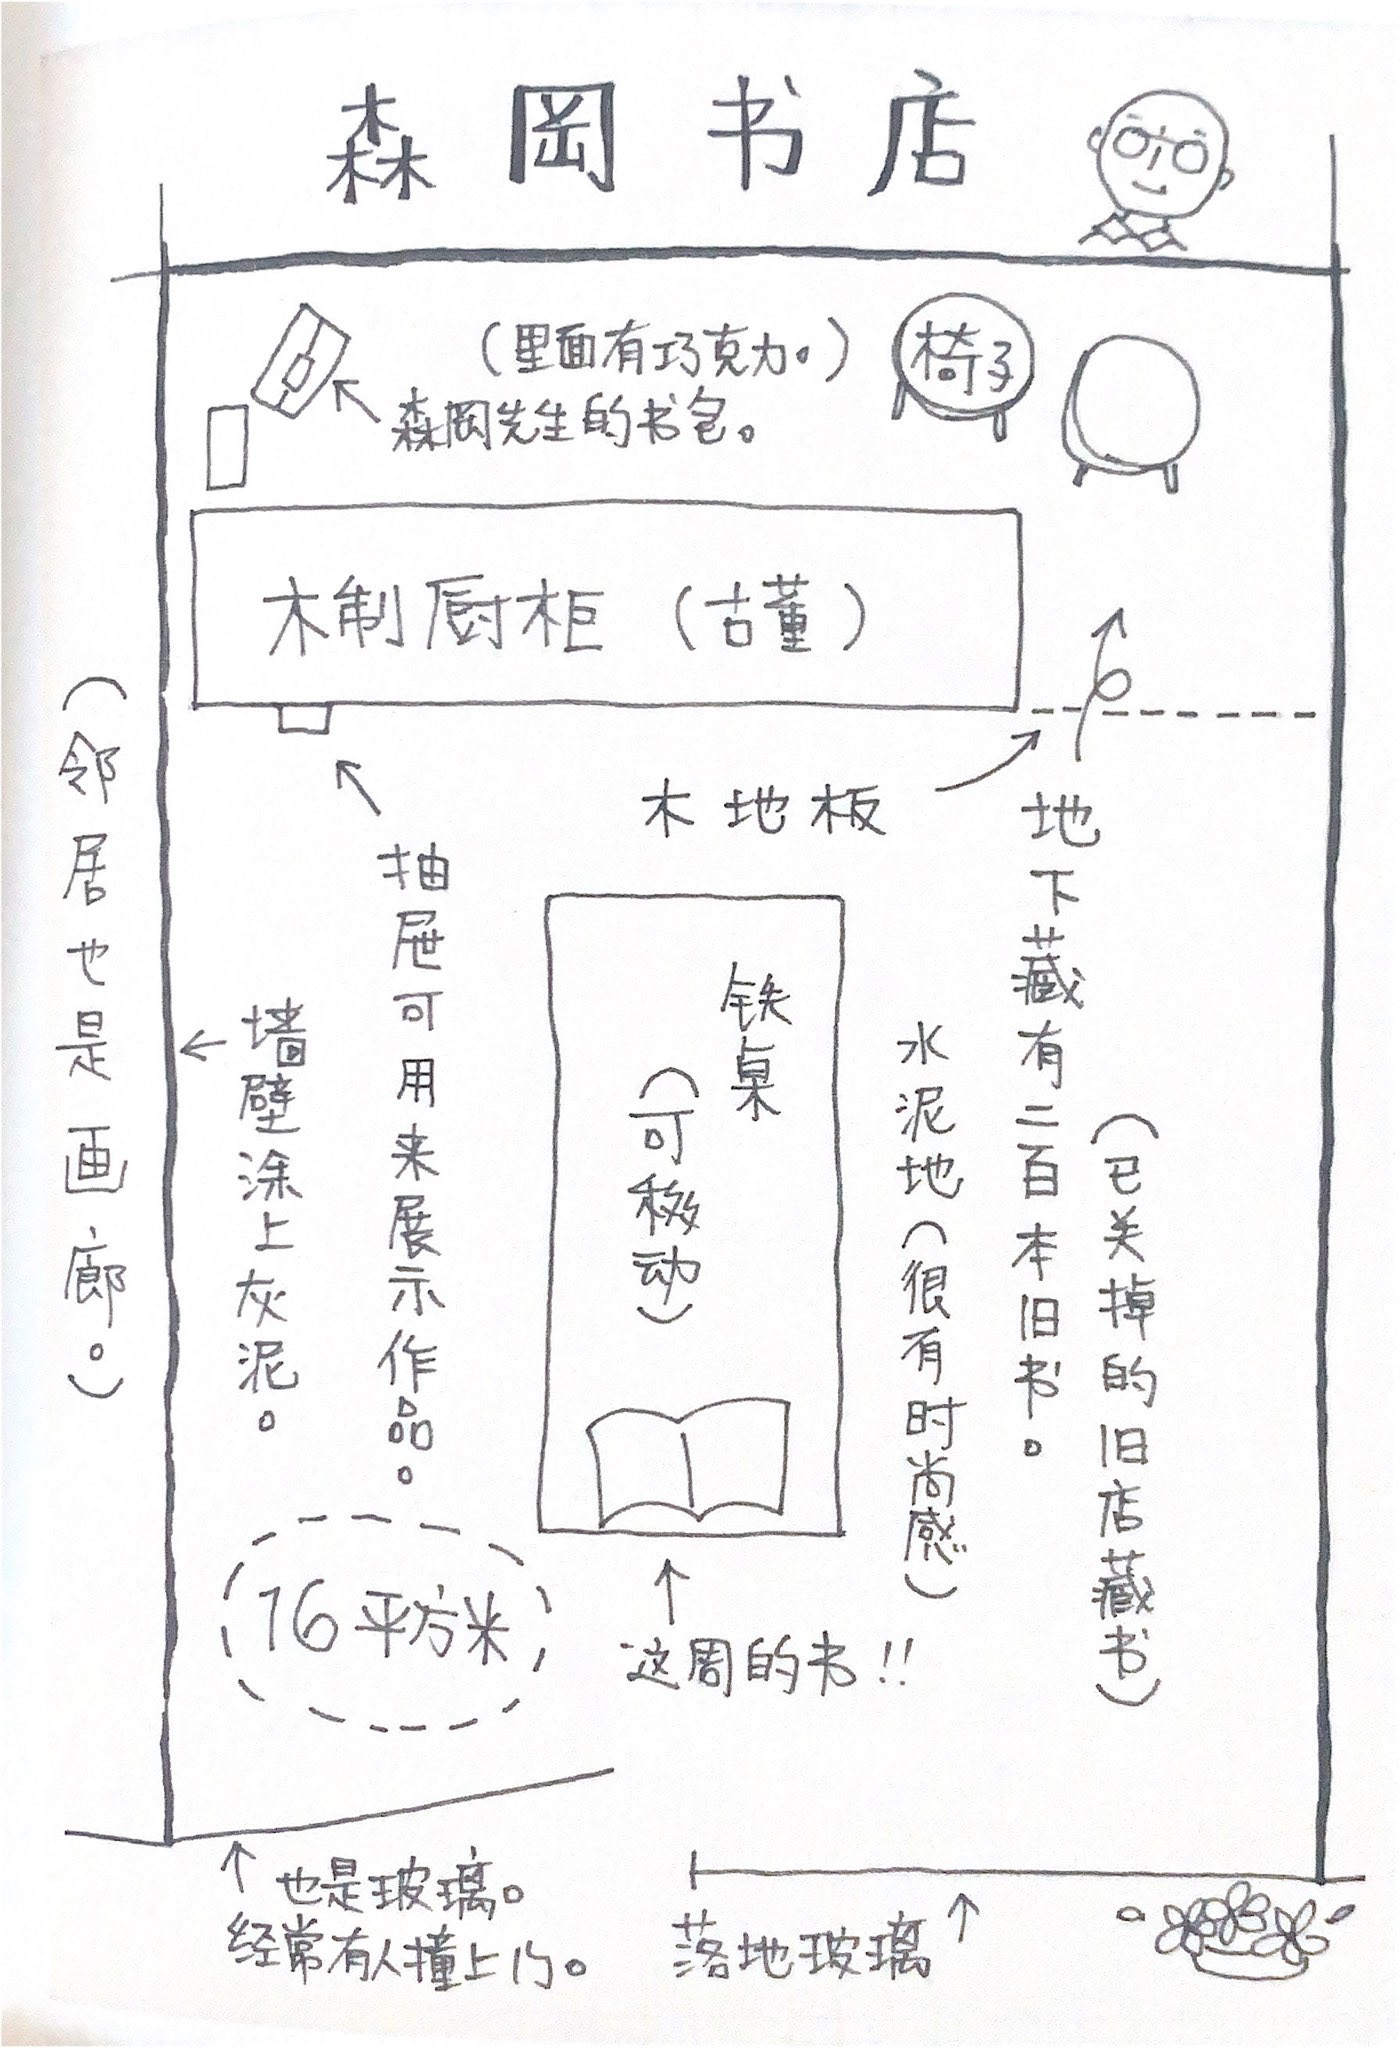 森岡书店
（里面有巧克力。）
森岡先生的书包。
椅子
木制厨柜（古董）
木地板
地下藏有二百本旧书。
（已关掉的旧店藏书）
水泥地（很有时尚感）
铁桌
（可移动）
抽屉可用来展示作品。
墙壁涂上灰泥。
（邻居也是画廊。）
16平方米
这周的书!!
也是玻璃。
经常有人撞上
落地玻璃